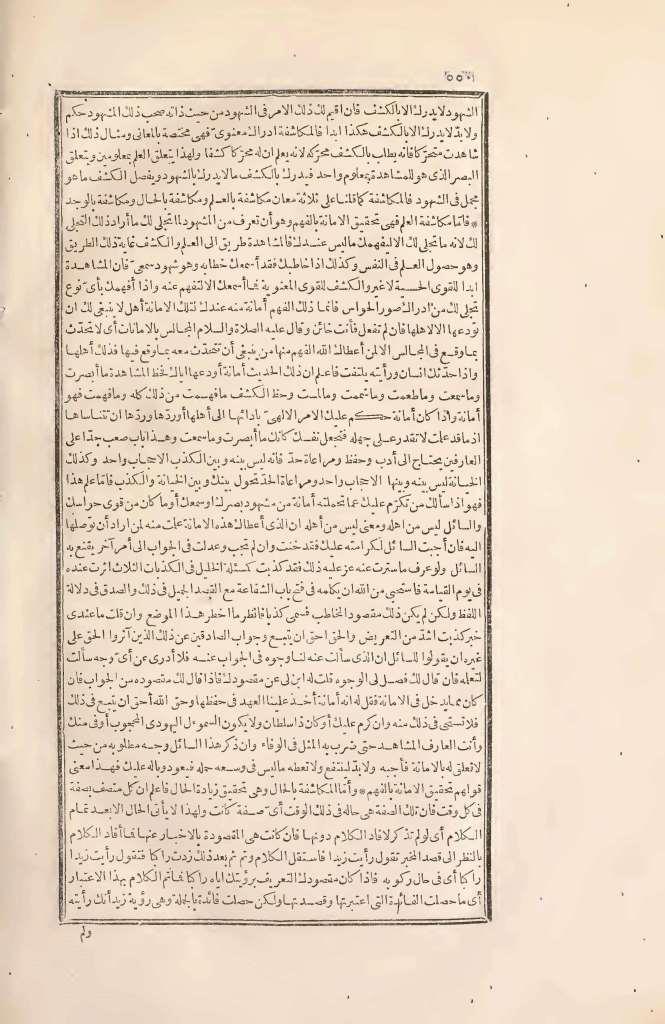 ٥٥٠
الشهود لا يدرك الا بالكشف فان اقيم لك ذلك الامر فى الشهود من حيث ذاته صحب ذلك المشهود حكم
ولا بدّ لا يدرك الا بالكشف هكذا ابدا فالمكاشفة ادراك معنوى فهى مختصة بالمعانى ومثال ذلك اذا
شاهدت متحرّكا فانه يطلب بالكشف محرّكه لانه يعلم ان له محرّكا كشفا ولهذا يتعلق العلم بمعلومين ويتعلق
البصر الذى هو للمشاهدة بمعلوم واحد فيدرك بالكشف ما لا يدرك بالشهود ويفصل الكشف ما هو
مجمل فى الشهود فالمكاشفة كما قلنا على ثلاثة معان مكاشفة بالعلم ومكاشفة بالحال ومكاشفة بالوجد
* فامّا مكاشفة العلم فهى تحقيق الامانة بالفهم وهو أن تعرف من المشهود لما تجلى لك ما أراد ذلك التجلى
لك لانه ما تجلى لك الا ليفهمك ما ليس عندك فالمشاهدة طريق الى العلم والكشف غاية ذلك الطريق
وهو حصول العلم فى النفس وكذلك اذا خاطبك فقد أسمعك خطابه وهو شهود سمعىّ فان المشاهدة
ابدا للقوى الحسية لا غير والكشف للقوى المعنوية فما أسمعك الا لتفهم عنه واذا أفهمك بأىّ نوع
تجلى لك من ادراك صور الحواس فانما ذلك الفهم أمانة منه عندك لتلك الامانة أهل لا ينبغى لك ان
تودعها الا لاهلها فان لم تفعل فأنت خائن وقال عليه الصلاة والسلام المجالس بالامانات أى لا تتحدّث
بما وقع فى المجالس الا لمن أعطاك الله الفهم منها من ينبغى أن تتحدّث معه بما وقع فيها فذلك أهلها
واذا حدّثك انسان ورأيته يلتفت فاعلم ان ذلك الحديث أمانة أودعها اياك فحظ المشاهدة ما أبصرت
وما سمعت وما طعمت وما شممت وما لمست وحظ الكشف ما فهمت من ذلك كله وما فهمت فهو
أمانة واذا كان أمانة حكم عليك الامر الالهىّ بادائها الى أهلها أوردّها وردّها ان تتناساها
اذ ما قد علمت لا تقدر على جهله فتجعل نفسك كأنك ما أبصرت وما سمعت وهذا باب صعب جدّا على
العارفين يحتاج الى أدب وحفظ ومراعاة حدّ فانه ليس بينه وبين الكذب الا حجاب واحد وكذلك
الخيانة ليس بينه وبينها الا حجاب واحد ومراعاة الحدّ تحول بينك وبين الخيانة والكذب فامّا علم هذا
فهو اذا سألك من تكرم عليك عما تحملته أمانة من مشهود بصرك او سمعك أو ما كان من قوى حواسك
والسائل ليس من اهله ومعنى ليس من أهله ان الذى أعطاك هذه الامانة علمت منه لمن أراد أن توصلها
اليه فان أجبت السائل لكرامته عليك فقد خنت وان لم تجب وعدلت فى الجواب الى أمر آخر يقنع به
السائل ولو عرف ما سترت عنه عز عليه ذلك فقد كذبت كمسئلة الخليل فى الكذبات الثلاث أثرت عنده
فى يوم القيامة فاستحى من الله ان يكلمه فى فتح باب الشفاعة مع القصد الجميل فى ذلك والصدق فى دلالة
اللفظ ولكن لم يكن ذلك مقصود المخاطب فسمى كذبا فانظر ما اخطر هذا الموضع وان قلت ما عندى
خبر كذبت اشدّ من التعريض والحق احق ان يتبع وجواب الصادقين عن ذلك الذين آثروا الحق على
غيره ان يقولوا للسائل ان الذى سألت عنه لنا وجوه فى الجواب عنه فلا أدرى عن أىّ وجه سألت
لتعلمه فان قال لك فصل لى الوجوه قلت له ابن لى عن مقصودك فاذا قال لك مقصوده من الجواب فان
كان مما يدخل فى الامانة فقل له انه أمانة أخذ علينا العهد فى حفظها وحق الله أحق ان يتبع فى ذلك
فلا تستحى فى ذلك منه وان كرم عليك أو كان ذا سلطان ولا يكون السموءل اليهودى المحجوب أوفى منك
وأنت العارف المشاهد حتى ضرب به المثل فى الوفاء وان ذكر هذا السائل وجه مطلوبه من حيث
لا تعلق له بالامانة فأجبه ولا بدّ لينتفع ولا تعطه ما ليس فى وسعه حمله فيعود وباله عليك فهذا معنى
قولهم تحقيق الامانة بالفهم * وأمّا المكاشفة بالحال وهى تحقيق زيادة الحال فاعلم ان كل متصف بصفة
فى كل وقت فان تلك الصفة هى حاله فى ذلك الوقت أىّ صفة كانت ولهذا لا يأتى الحال الا بعد تمام
الكلام أى لو لم تذكر لافاد الكلام دونها فان كانت هى المقصودة بالاخبار عنها فما أفاد الكلام
بالنظر الى قصد المخبر تقول رأيت زيدا فاستقل الكلام وتم ثم بعد ذلك زدت راكبا فتقول رأيت زيدا
راكبا أى فى حال ركوبه فاذا كان مقصودك التعريف برؤيتك اياه راكبا فما تم الكلام بهذا الاعتبار
أى ما حصلت الفائدة التى اعتبرتها وقصدتها ولكن حصلت فائدة بالجملة وهى رؤية زيد أنك رأيته
ولم